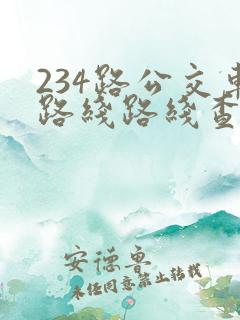 234路公交车
路线路线查
安德鲁
未经同意禁止转载